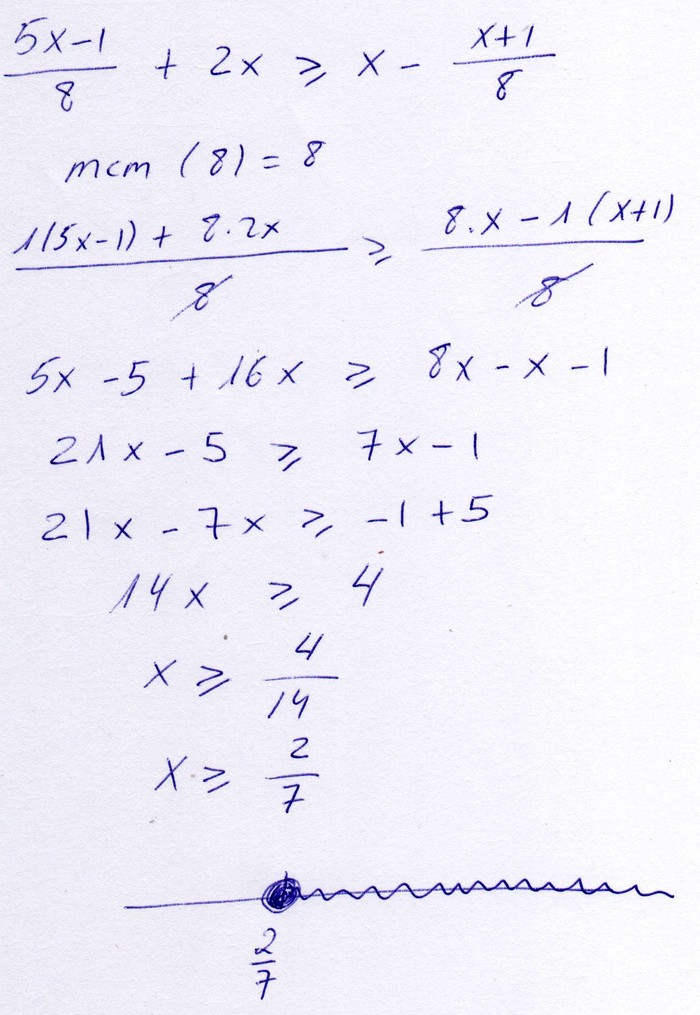 5x-1/8 + 2x ≥ x - x+1/8
mcm (8) = 8
1(5x-1) + 8·2x/8 ≥ 8·x - 1(x+1)/8
5x - 5 + 16x ≥ 8x - x - 1
21x - 5 ≥ 7x - 1
21x - 7x ≥ -1 + 5
14x ≥ 4
x ≥ 4/14
x ≥ 2/7
2/7